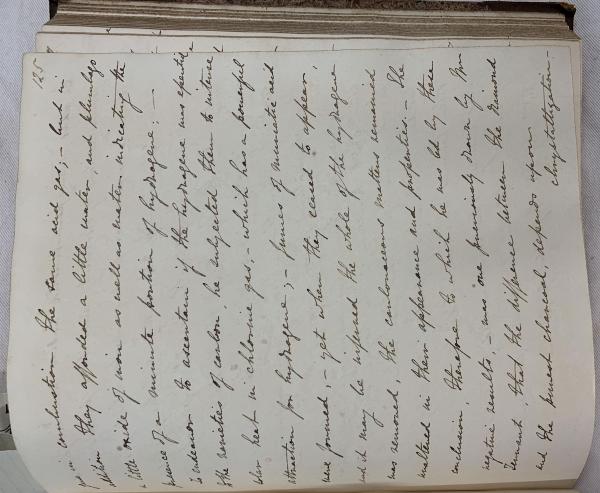 125
gas in combustion the same acid gas; – but in
addition they afforded a little water, and plumbago
a little oxide of iron as well as water, indicating the
presence of a minute portion of hydrogene; –
To endeavor to ascertain if the hydrogene was essential
to the varieties of carbon, he subjected them to intense
when heat in chlorine gas, – which has a powerful
attraction for hydrogene; – fumes of muriatic acid
were formed, – yet when they ceased to appear,
and it may be inferred the whole of the hydrogene
was removed, the carbonaceous matters remained
unaltered in their appearance and properties. – The
conclusion, therefore to which he was led by these
negative results, – was one previously drawn by Mr
Tennant, that the difference between the diamond
and the purest charcoal, depends upon
chrystallization –